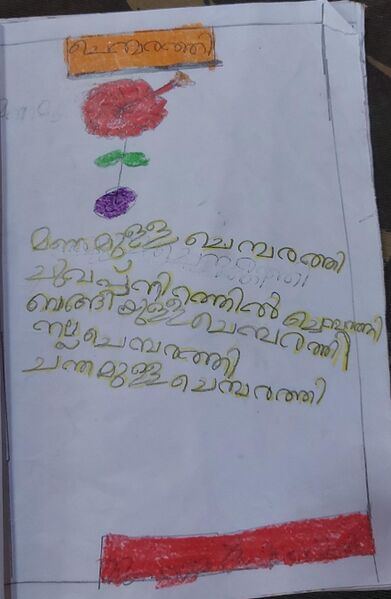 ചെമ്പരത്തി
മണമുള്ള ചെമ്പരത്തി
ചുവപ്പ് നിറത്തിൽ ചെമ്പരത്തി
ബങ്ങിയുള്ള ചെമ്പരത്തി
നല്ല ചെമ്പരത്തി
ചന്തമുള്ള ചെമ്പരത്തി